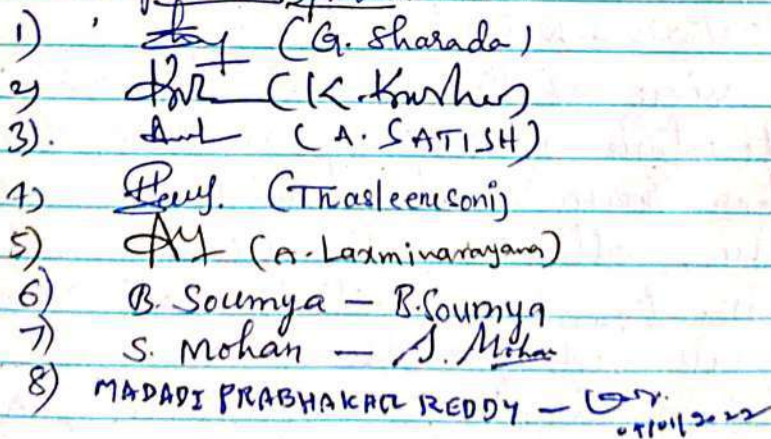 1) (G. Sharada)
2) (K.
3). (A. SATISH)
4) (Thasleemsoni)
5) (A. Laxminarayana)
6) B. Soumya – B. Soumya
7) S. Mohan – S. Mohan
8) MADADI PRABHAKAR REDDY –